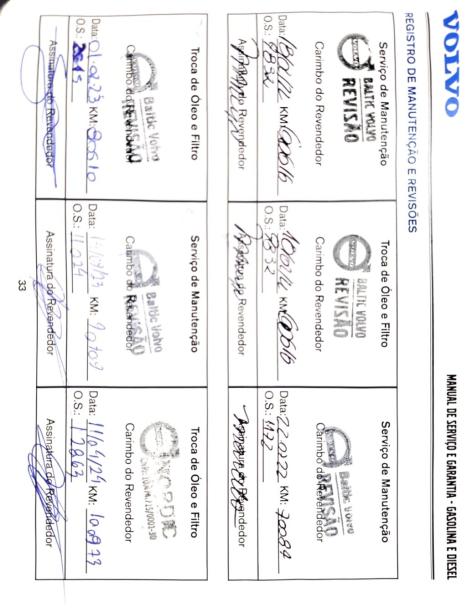 VOLVO
MANUAL DE SERVIÇO E GARANTIA - GASOLINA E DIESEL
REGISTRO DE MANUTENÇÃO E REVISÕES
Serviço de Manutenção
BALTIC VOLVO
REVISÃO
Carimbo do Revendedor
Data: KM: 60616
O.S.: 9832
Assinatura do Revendedor
Troca de Óleo e Filtro
BALTIC VOLVO
REVISÃO
Carimbo do Revendedor
Data: KM: 60616
O.S.: 9832
Assinatura do Revendedor
Serviço de Manutenção
Baltic Volvo
REVISÃO
Carimbo do Revendedor
Data: KM: 70084
O.S.: 1172
Assinatura do Revendedor
Troca de Óleo e Filtro
Baltic Volvo
REVISÃO
Carimbo do Revendedor
Data: KM: 80610
O.S.:
Assinatura do Revendedor
Serviço de Manutenção
Baltic Volvo
REVISÃO
Carimbo do Revendedor
Data: KM: 90709
O.S.: 11024
Assinatura do Revendedor
Troca de Óleo e Filtro
NORDIC
Carimbo do Revendedor
Data: 11/04/24 KM: 100973
O.S.: 12863
Assinatura do Revendedor
33